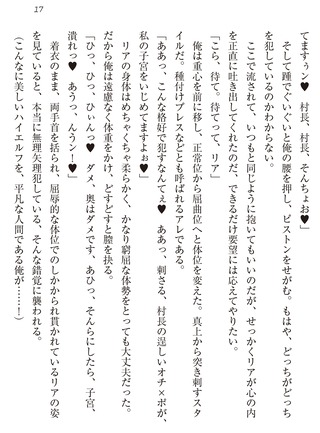 17
てますぅン♥ 村長、村長、そんちょお♥」
そして踵でぐいぐいと俺の腰を押し、ピストンをせがむ。もはや、どっちがどっち
を犯しているのかわからない。
ここで流されて、いつもと同じように抱いてもいいのだが、せっかくリアが心の内
を正直に吐き出してくれたのだ、できるだけ要望には応えてやりたい。
「こら、待て。待てって、リア」
俺は重心を前に移し、正常位から屈曲位へと体位を変えた。真上から突き刺すスタ
イルだ。種付けプレスなどとも呼ばれるアレである。
「ああっ、こんな格好で犯すなんてぇ♥ ああっ、刺さる、村長の逞しいオチ×ポが、
私の子宮をいじめてますよぉ♥」
リアの身体はめちゃくちゃ柔らかく、かなり窮屈な体勢をとっても大丈夫だった。
だから俺は遠慮なく体重をかけ、どすどすと膣を抉る。
「ひっ、ひっ、ひぃんっ♥ ダメ、奥はダメです、あひっ、そんらにしたら、子宮、
潰れっ♥ あうっ、んうン！♥」
着衣のまま、両手首を括られ、屈辱的な体位でのしかかられ貫かれているリアの姿
を見ていると、本当に無理矢理犯している、そんな錯覚に襲われる。
（こんなに美しいハイエルフを、平凡な人間である俺が……！）